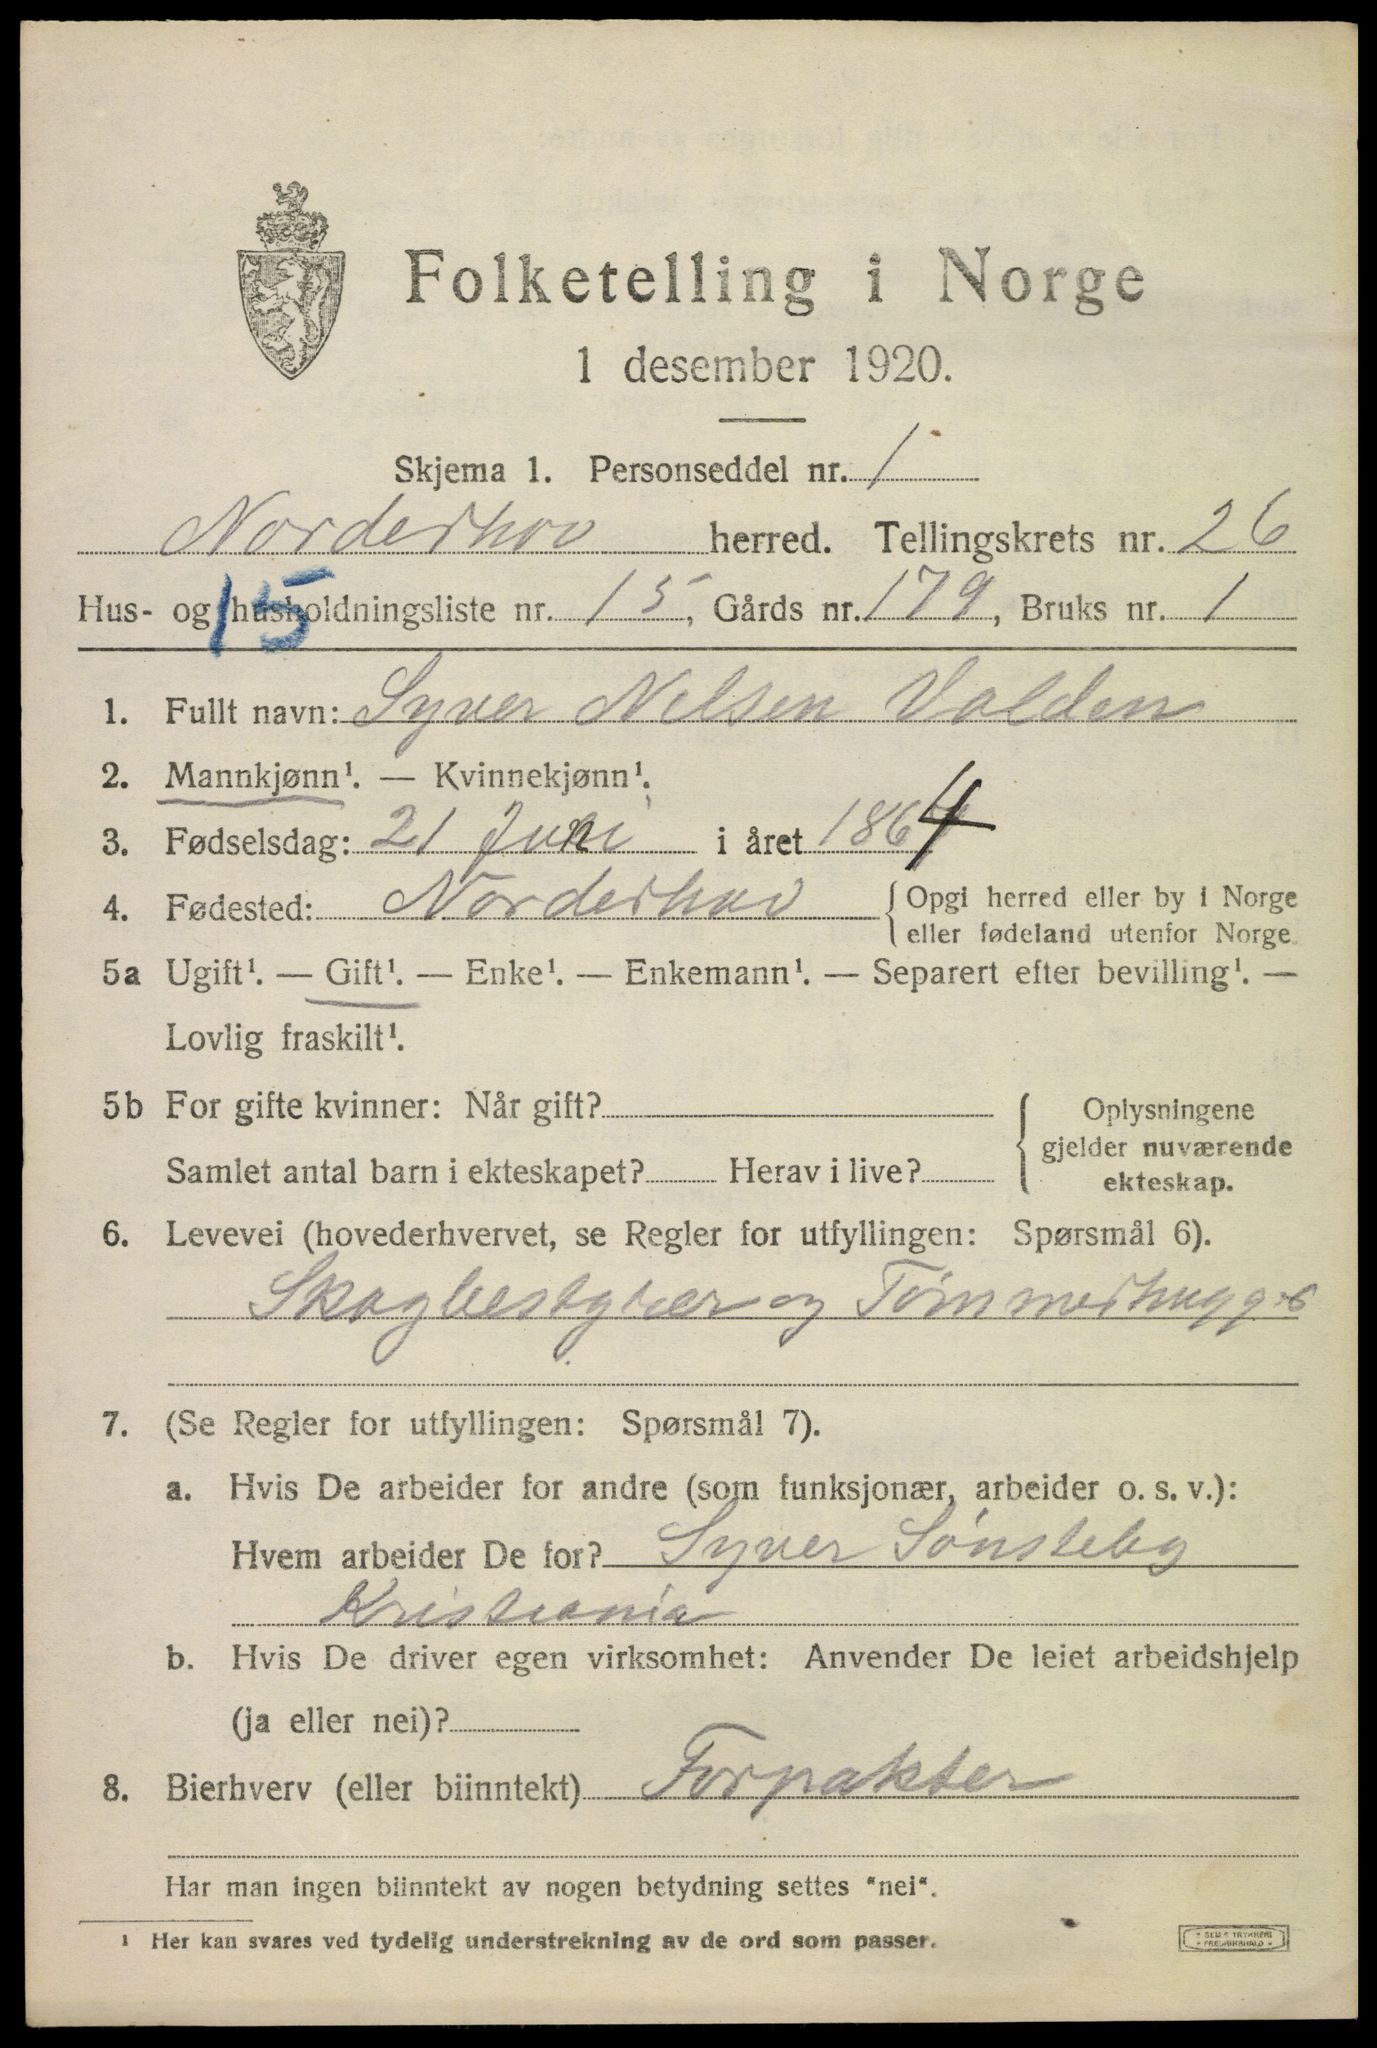 Folketelling i Norge
1 desember 1920.
Skjema 1. Personseddel nr. 1
Norderhov herred. Tellingskrets nr. 26
Hus- og husholdningsliste nr. 15, Gårds nr. 179, Bruks nr. 1
15
1. Fullt navn: Syver Nelsen Valden
2. Mannkjønn¹. — Kvinnekjønn¹.
3. Fødselsdag: 21 Juni i året 1864
4. Fødested: Norderhov { Opgi herred eller by i Norge
eller fødeland utenfor Norge
5a Ugift¹. — Gift¹. — Enke¹. — Enkemann¹. — Separert efter bevilling¹. —
Lovlig fraskilt¹.
5b For gifte kvinner: Når gift? { Oplysningene
gjelder nuværende
Samlet antal barn i ekteskapet? Herav i live? ekteskap.
6. Levevei (hovederhvervet, se Regler for utfyllingen: Spørsmål 6).
Skogbestyrer og Tømmerhugger
7. (Se Regler for utfyllingen: Spørsmål 7).
a. Hvis De arbeider for andre (som funksjonær, arbeider o. s. v.):
Hvem arbeider De for? Syver Sønsteby
Kristiania
b. Hvis De driver egen virksomhet: Anvender De leiet arbeidshjelp
(ja eller nei)?
8. Bierhverv (eller biinntekt) Forpakter
Har man ingen biinntekt av nogen betydning settes "nei".
¹ Her kan svares ved tydelig understrekning av de ord som passer.